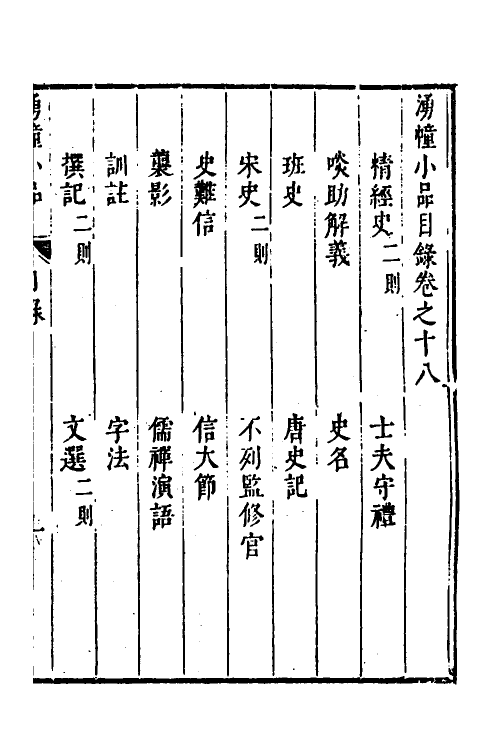 湧幢小品目錄卷之十八
精經史二則　士夫守禮
啖助解義　史名
班史　唐史記
宋史二則　不列監修官
史難信　信大節
纂影　儒禪演語
訓註　字法
撰記二則　文選二則
湧幢小品　目錄